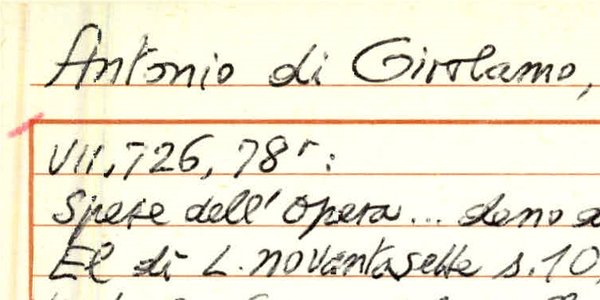 Antonio di Girolamo,
VII, 726, 78r:
Spese dell' opera... deno
El dì L. novantasette s. 10,